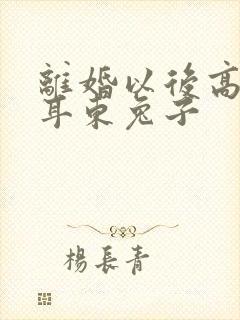 離婚以後高
耳東兔子
楊長青